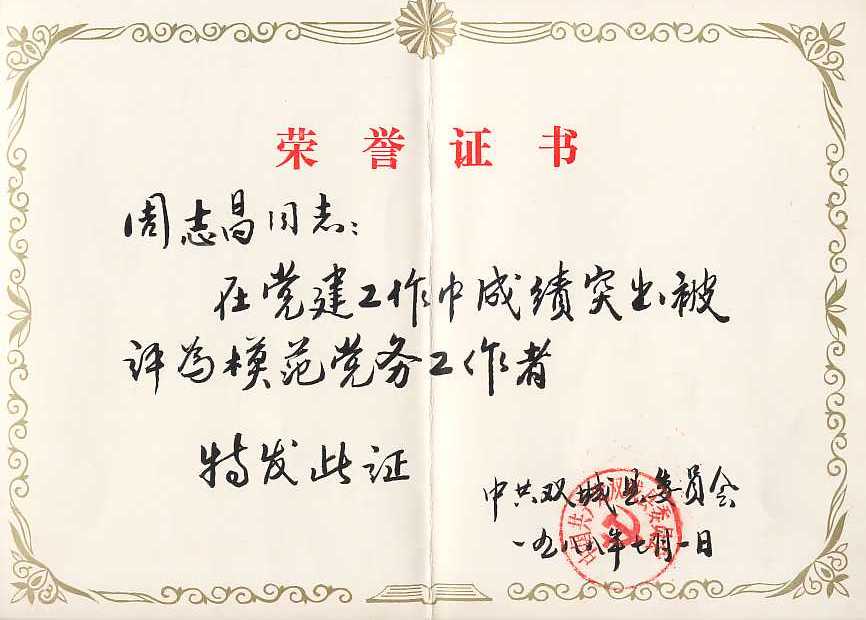 荣誉证书
周志昌同志：
在党建工作中成绩突出被
评为模范党务工作者
特发此证
中共双城县委员会
一九八八年七月一日
中国共产党双城县委员会